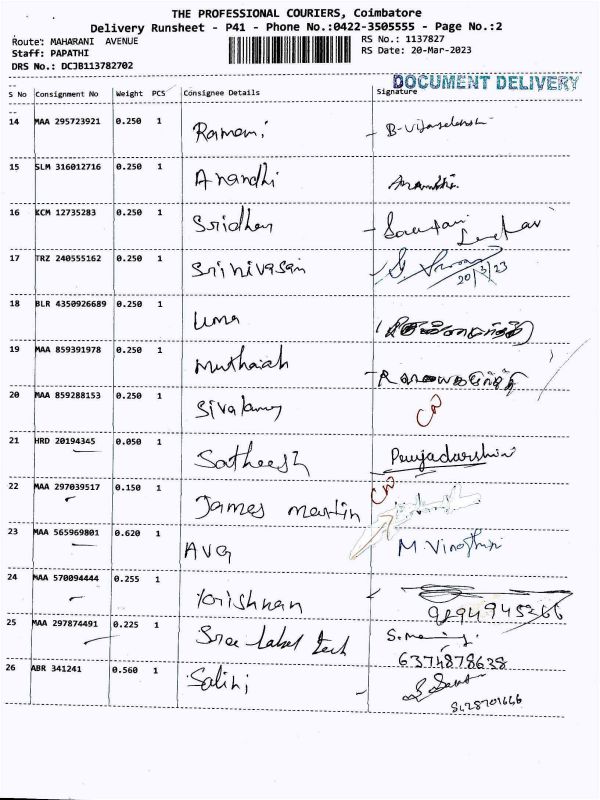 THE PROFESSIONAL COURIERS, Coimbatore
Delivery Runsheet - P41 - Phone No.:0422-3505555 - Page No.:2
Route: MAHARANI AVENUE RS No.: 1137827
Staff: PAPATHI RS Date: 20-Mar-2023
DRS No.: DCJB113782702
DOCUMENT DELIVERY
S No Consignment No Weight PCS Consignee Details Signature
14 MAA 295723921 0.250 1 Ramani
15 SLM 316012716 0.250 1 Anandhi
16 KCM 12735283 0.250 1 Sridhar
17 TRZ 240555162 0.250 1 Srinivasan 20/3/23
18 BLR 4350926689 0.250 1 Uma
19 MAA 859391978 0.250 1 Muthaiah
20 MAA 859288153 0.250 1
21 HRD 20194345 0.050 1 Satheesh
22 MAA 297039517 0.150 1 James martin
23 MAA 565969801 0.620 1 AVG M.Vinothini
24 MAA 570094444 0.255 1 Krishnan
25 MAA 297874491 0.225 1 Sree Label tech
6374878638
26 ABR 341241 0.560 1 Salini